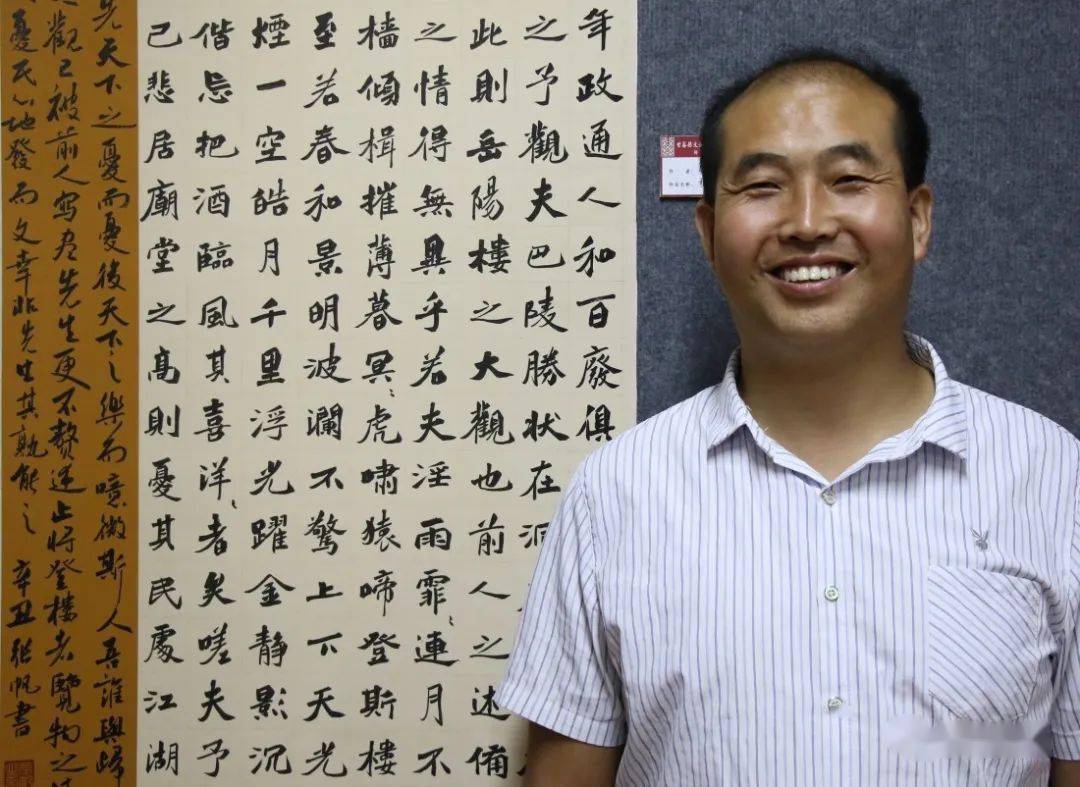 年政通人和百廢俱
之予觀夫巴陵勝狀在洞
此則岳陽樓之大觀也前人之述備
之情得無異乎若夫淫雨霏〻連月不
檣傾楫摧薄暮冥〻虎嘯猿啼登斯樓
至若春和景明波瀾不驚上下天光
煙一空皓月千里浮光躍金静影沉
偕忘把酒臨風其喜洋〻者矣嗟夫予
己悲居廟堂之高則憂其民處江湖
先天下之憂而憂後天下之樂而噫微斯人吾誰與歸
觀已被前人寫盡先生更不贅述止將登樓者覽物之
憂民心地發而文章非先生其孰能之 辛丑張帆書